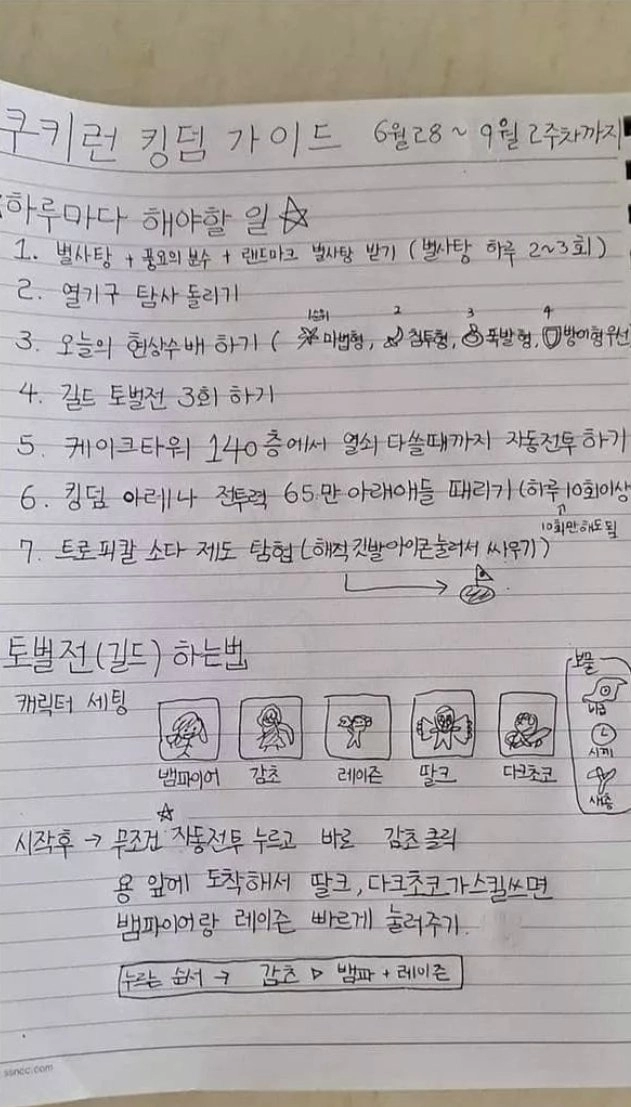 쿠키런 킹덤 가이드 6월28 ~ 9월 2주차까지
하루마다 해야할 일 ☆
1. 별사탕 + 풍요의 분수 + 랜드마크 별사탕 받기 (별사탕 하루 2~3회)
2. 열기구 탐사 돌리기
1순위 2 3 4
3. 오늘의 현상수배 하기 ( 마법형, 침투형, 폭발형, 방어형우선
4. 길드 토벌전 3회 하기
5. 케이크타워 140층에서 열쇠 다쓸때까지 자동전투 하기
6. 킹덤 아레나 전투력 65만 아래애들 때리기 (하루 10회이상
10회만해도됨
7. 트로피칼 소다 제도 탐험 (해적깃발아이콘눌러서 싸우기)
토벌전(길드) 하는법
보물
캐릭터 세팅
시계
뱀파이어 감초 레이즌 딸크 다크초코
시작후 → 무조건 ☆ 자동전투 누르고 바로 감초클릭
용 앞에 도착해서 딸크, 다크초코가스킬쓰면
뱀파이어랑 레이즌 빠르게 눌러주기.
누르는 순서 → 감초 ▷ 뱀파 + 레이즌
ssncc.com